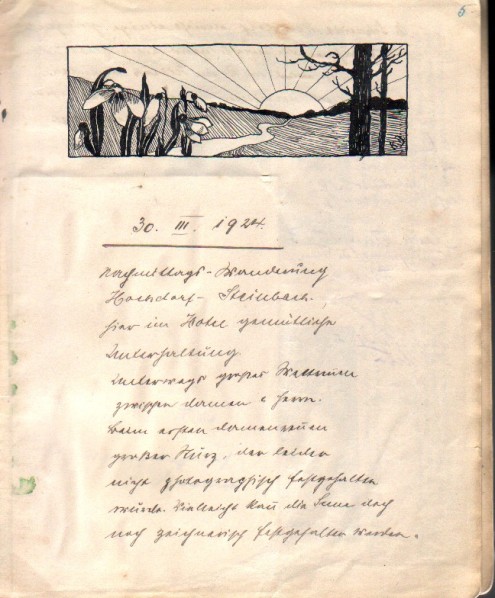 5
30. III. 1924.
Nachmittags-Wanderung
Hochdorf - Steinbach.
hier im Hotel gemütliche
Unterhaltung.
Unterwegs großes Wettrennen
zwischen Damen & Herrn.
Beim ersten Damenrennen
großer Sturz, der leider
nicht photographisch festgehalten
wurde. Vielleicht kan die Scene doch
noch zeichnerisch festgehalten werden.